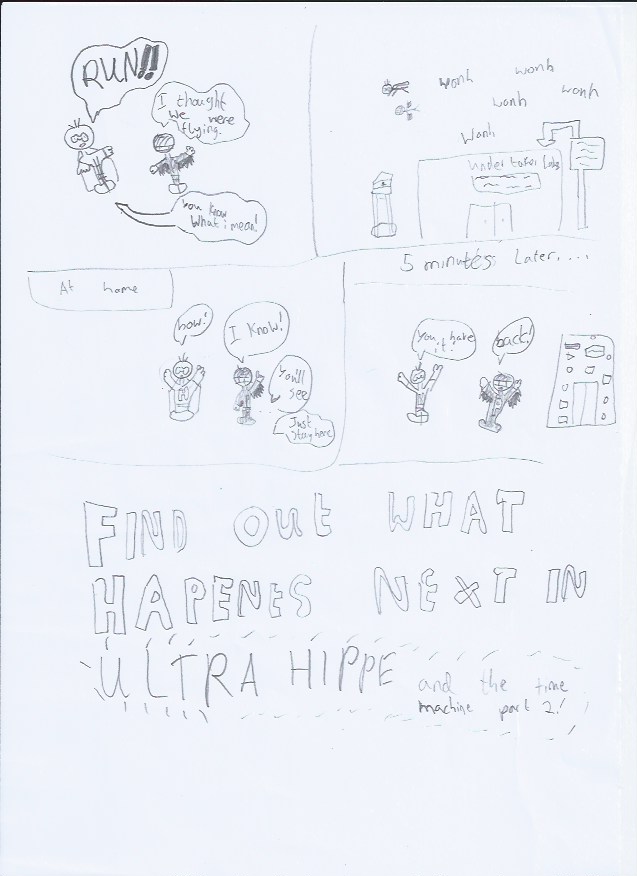 RUN!!
I thought
we were
flying.
You know
what i mean!
wonh
wonh
wonh
wonh
wonh
undertaker labs
5 minutes Later....
At home
how!
I know!
You'll
see
Just
stay here
You, have
it!
back!
FIND OUT WHAT
HAPENES NEXT IN
ULTRA HIPPE
and the time
machine part 2!